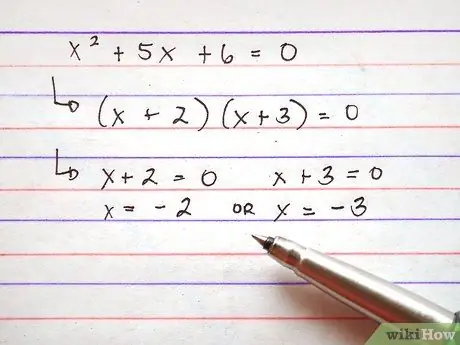 x² + 5x + 6 = 0
(x + 2)(x + 3) = 0
x + 2 = 0 x + 3 = 0
x = -2 OR x = -3
wikiHow